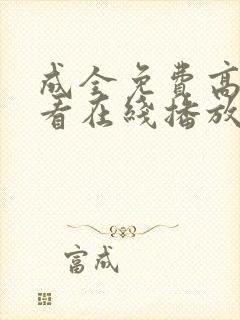 成全免费高
看在线播放
富成